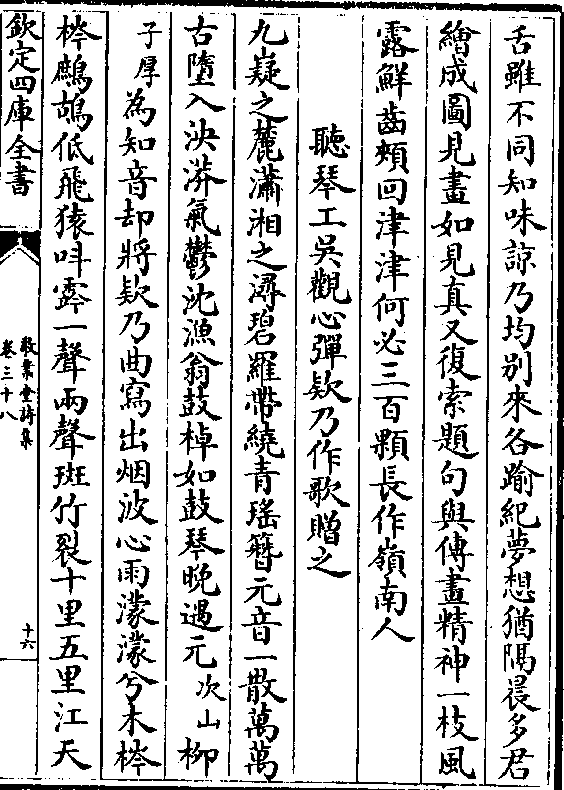 舌雖不同知味諒乃均别來各踰紀夢想猶隔晨多君
繪成圖見畫如見真又復索題句與傳畫精神一枝風
露鮮齒頰回津津何必三百顆長作嶺南人
聽琴工吳觀心彈欵乃作歌贈之
九嶷之麓瀟湘之潯碧羅帶繞青瑤簪元音一散萬萬
古墮入泱漭氣鬱沈漁翁鼓棹如鼓琴晚遇元次山柳
子厚為知音却將欵乃曲寫出烟波心雨濛濛兮木梣
梣鷓鴣低飛猿叫霠一聲兩聲斑竹裂十里五里江天
欽定四庫全書
敬業堂詩集
卷三十八
十六